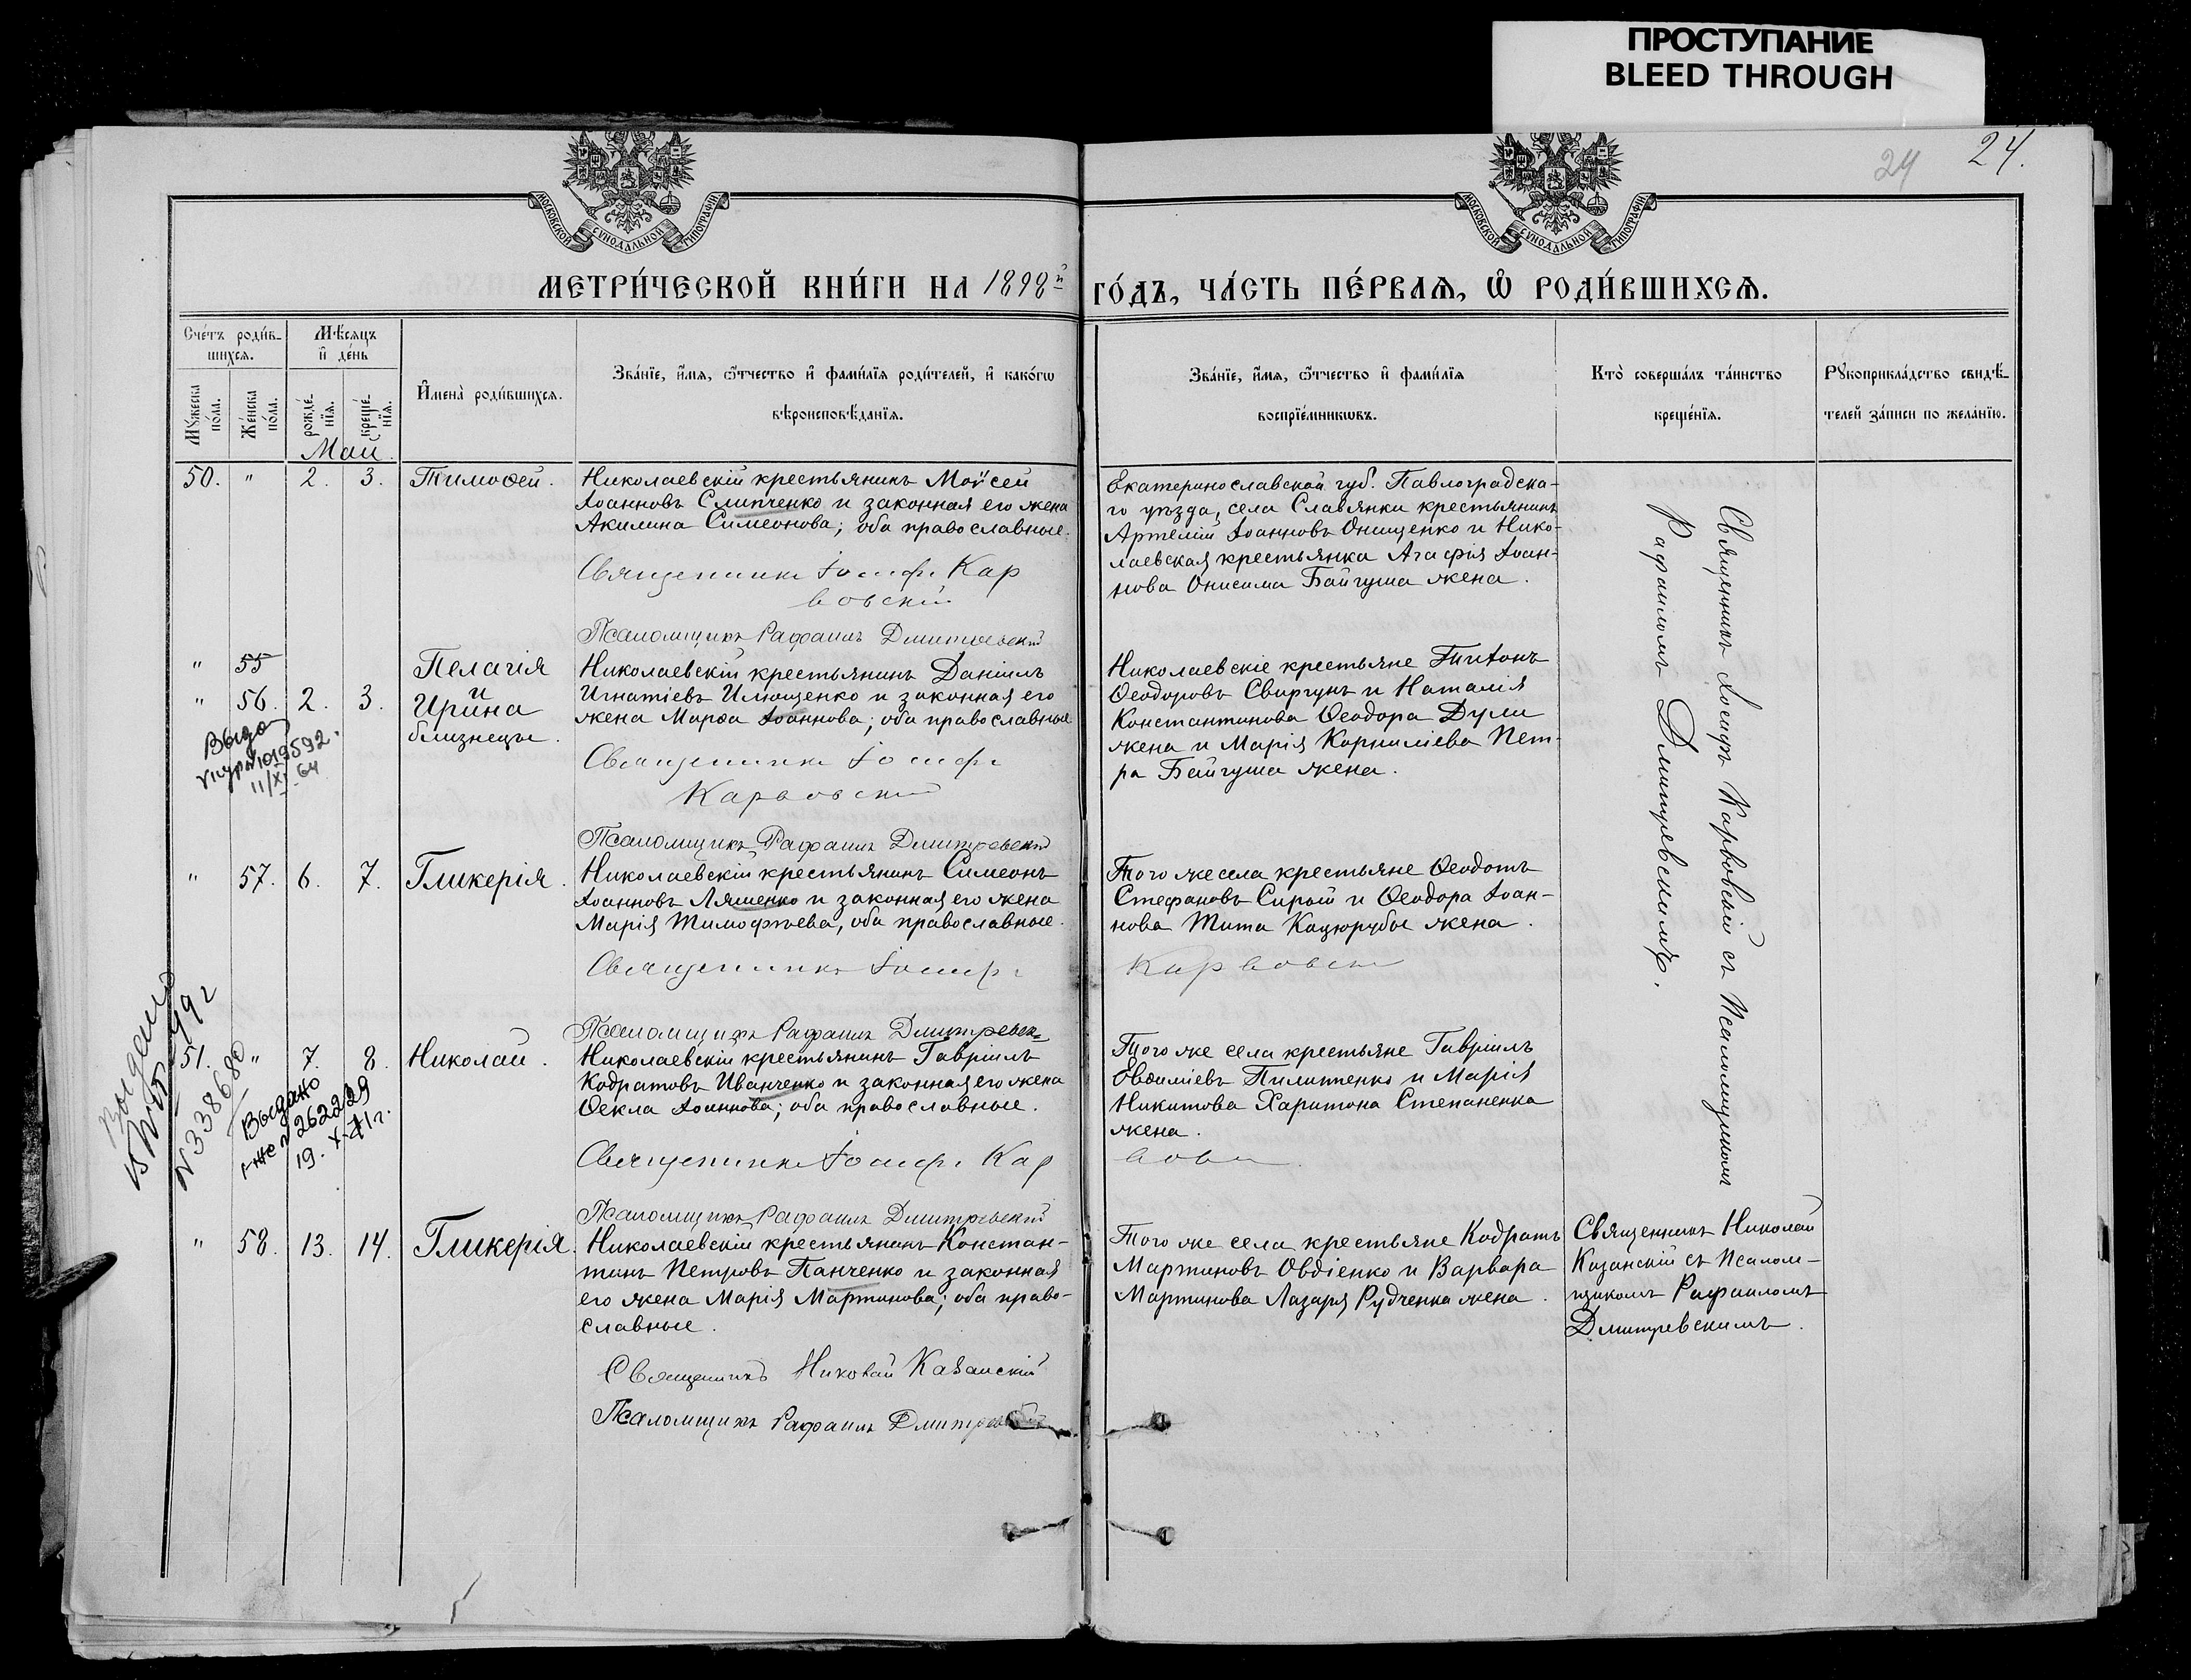 ПРОСТУПАНИЕ
BLEED THROUGH
24
24.
МОСКОВСКОЙ СѴНОДАЛЬНОЙ ТИПОГРАФІИ
МОСКОВСКОЙ СѴНОДАЛЬНОЙ ТИПОГРАФІИ
МЕТРИ́ЧЕСКОЙ КНИ́ГИ НА 1898й ГО́ДЪ, ЧА́СТЬ ПЕ́РВАѦ, Ѡ РОДИ́ВШИХСѦ.
Сче́тъ роди́в-
шихсѧ.
Мꙋ́жеска по́ла.
Же́нска по́ла.
Мѣ́сѧцъ
и҆ де́нь
рожде́нїѧ.
креще́нїѧ.
И҆мена̀ роди́вшихсѧ.
Зва́нїе, и҆́мѧ, ѻ҆́тчество и҆ фами́лїѧ роди́телей, и҆ како́гѡ
вѣроисповѣ́данїѧ.
Зва́нїе, и҆́мѧ, ѻ҆́тчество и҆ фами́лїѧ
воспрїе́мникѡвъ.
Кто̀ соверша́лъ та́инство
креще́нїѧ.
Рꙋкоприкла́дство свидѣ́-
телей за́писи по жела́нїю.
Маи.
50. " 2. 3. Тимоѳей.
Николаевскій крестьянинъ Моѵсей
Іоанновъ Слипченко и законная его жена
Акилина Симеонова; оба православные.
Священникъ Іосифъ Кар
вовскій
Псаломщикъ Рафаилъ Дмитревскій
Екатеринославской губ. Павлоградска-
го уѣзда, села Славянки крестьянинъ
Артемій Іоанновъ Онищенко и Нико-
лаевская крестьянка Агафія Іоан-
нова Онисима Байгуша жена.
Священникъ Іосифъ Карвовскій съ Псаломщикомъ
Рафаиломъ Дмитревскимъ.
" 55
" 56. 2. 3.
Пелагія
и
Ирина
близнецы.
Николаевскій крестьянинъ Даніилъ
Игнатіевъ Илющенко и законная его
жена Марѳа Іоаннова; оба православные
Священникъ Іосифъ
Карвовскій
Псаломщикъ Рафаилъ Дмитревскій
Николаевскіе крестьяне Титонъ
Ѳеодоровъ Свиргунъ и Наталія
Константинова Ѳеодора Дули
жена и Марія Корниліева Пет-
ра Байгуша жена.
11/XI-64
" 57. 6. 7. Гликерія.
Николаевскій крестьянинъ Симеонъ
Іоанновъ Ляшенко и законная его жена
Марія Тимофѣева, оба православные.
Священникъ Іосифъ Карвовск
Псаломщикъ Рафаилъ Дмитревск
Того же села крестьяне Ѳеодотъ
Стефановъ Сирый и Ѳеодора Іоан-
нова Тита Кацюрубы жена.
51. " 7. 8. Николай.
Николаевскій крестьянинъ Гавріилъ
Кодратовъ Иванченко и законная его жена
Ѳекла Іоаннова; оба православные.
Священникъ Іосифъ Кар
вовс
Псаломщикъ Рафаилъ Дмитревскій
Того же села крестьяне Гавріилъ
Евѳиміевъ Пилипенко и Марія
Никитова Харитона Степаненка
жена.
N 338680
Выдано
19.X-71г.
" 58. 13. 14. Гликерія.
Николаевскій крестьянинъ Констан-
тинъ Петровъ Панченко и законная
его жена Марія Мартинова; оба право-
славные.
Священникъ Николай Казанскій
Псаломщикъ Рафаилъ Дмитревскій
Того же села крестьяне Кодратъ
Мартиновъ Овдіенко и Варвара
Мартинова Лазаря Рудченка жена.
Священникъ Николай
Казанскій съ Псалом-
щикомъ Рафаиломъ
Дмитревскимъ.